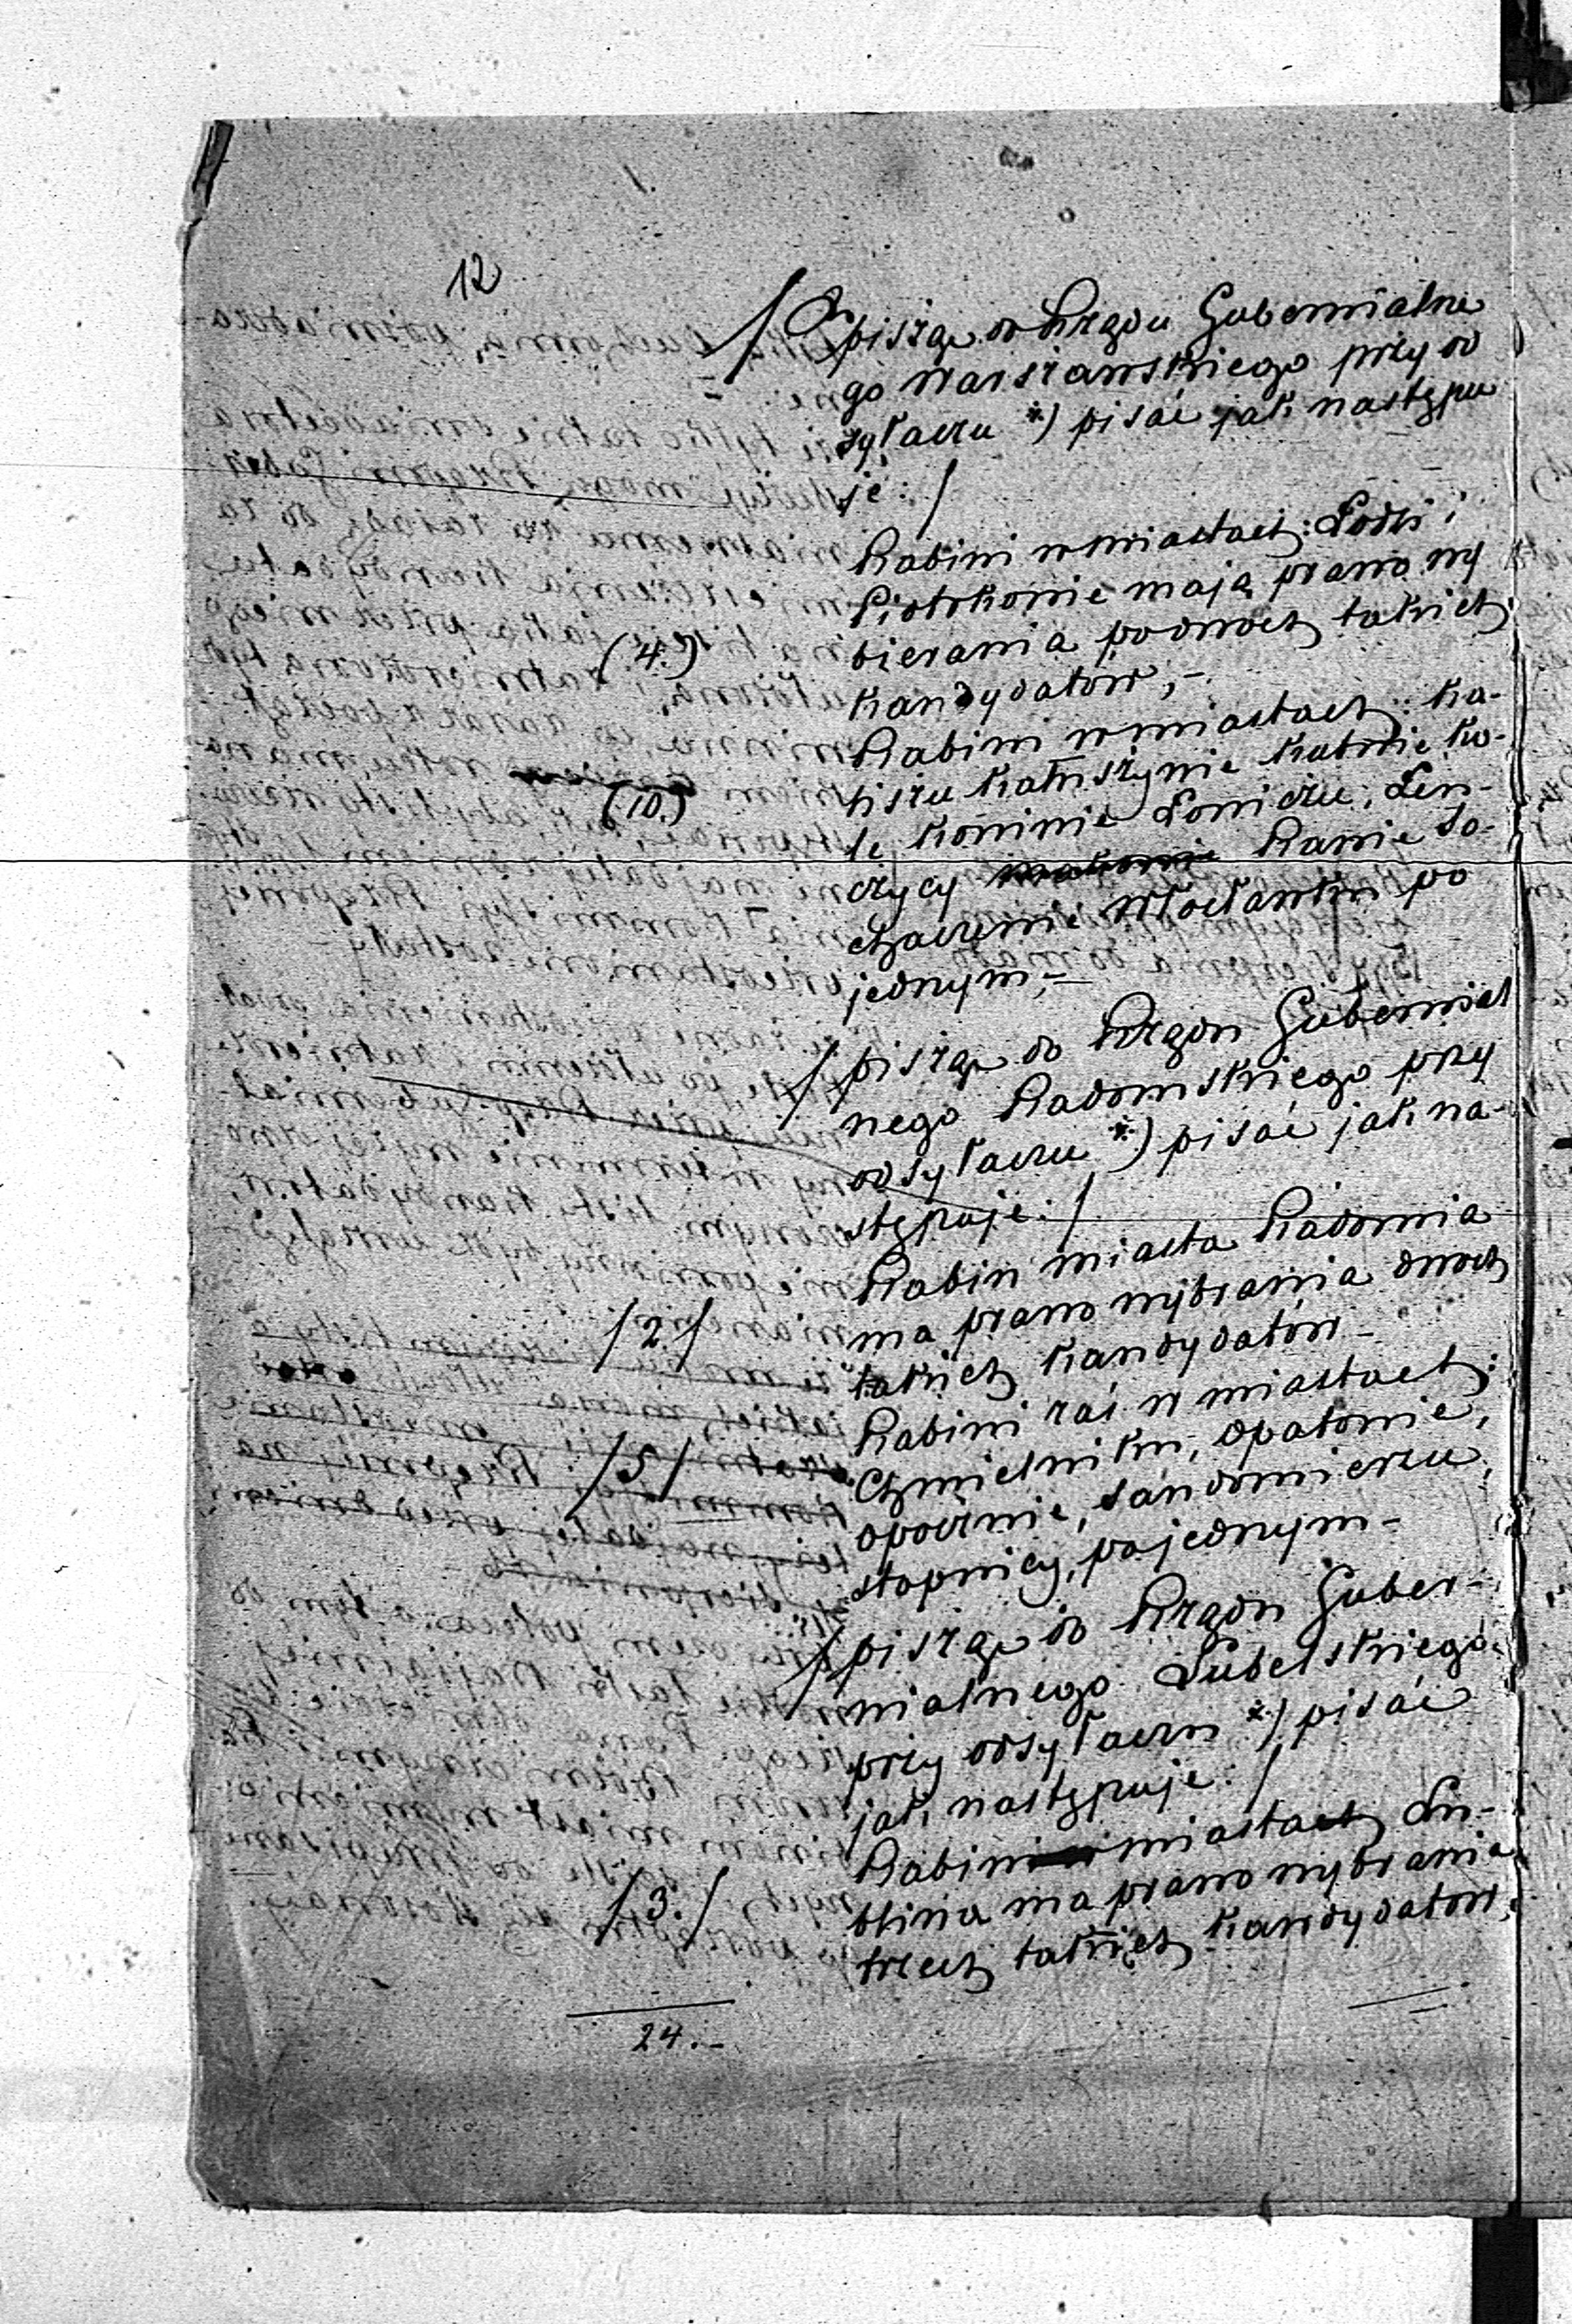 12
/ pisząc do Rządu Gubernialne
go Warszawskiego przy od
syłaczu *) pisać jak następu
je: /
Rabini w miastach: Łodzi i
Piotrkowie mają prawo wy
bierania po dwóch takich
(4.)
kandydatów, –
Rabini w miastach: Ka-
liszu Kałuszynie Kutnie Ko-
(10.)
le Koninie Łowiczu, Łen-
czycy Rawie So-
chaczewie Włocławku po
jednym, –
/ pisząc do Rządu Gubernial
nego Radomskiego przy
odsyłaczu *) pisać jak na-
stępuje: /
Rabin miasta Radomia
/2./
ma prawo wybrania dwóch
takich kandydatów –
Rabini zaś w miastach:
/5/
Chmielniku, Opatowie,
Opocznie, Sandomierzu,
Stopnicy, po jednym –
/ pisząc do Rządu Guber-
nialnego Lubelskiego
przy odsyłaczu *) pisać
jak następuje: /
Rabin miasta Lu-
/3./
blina ma prawo wybrania
trzech takich kandydatów,
24. –